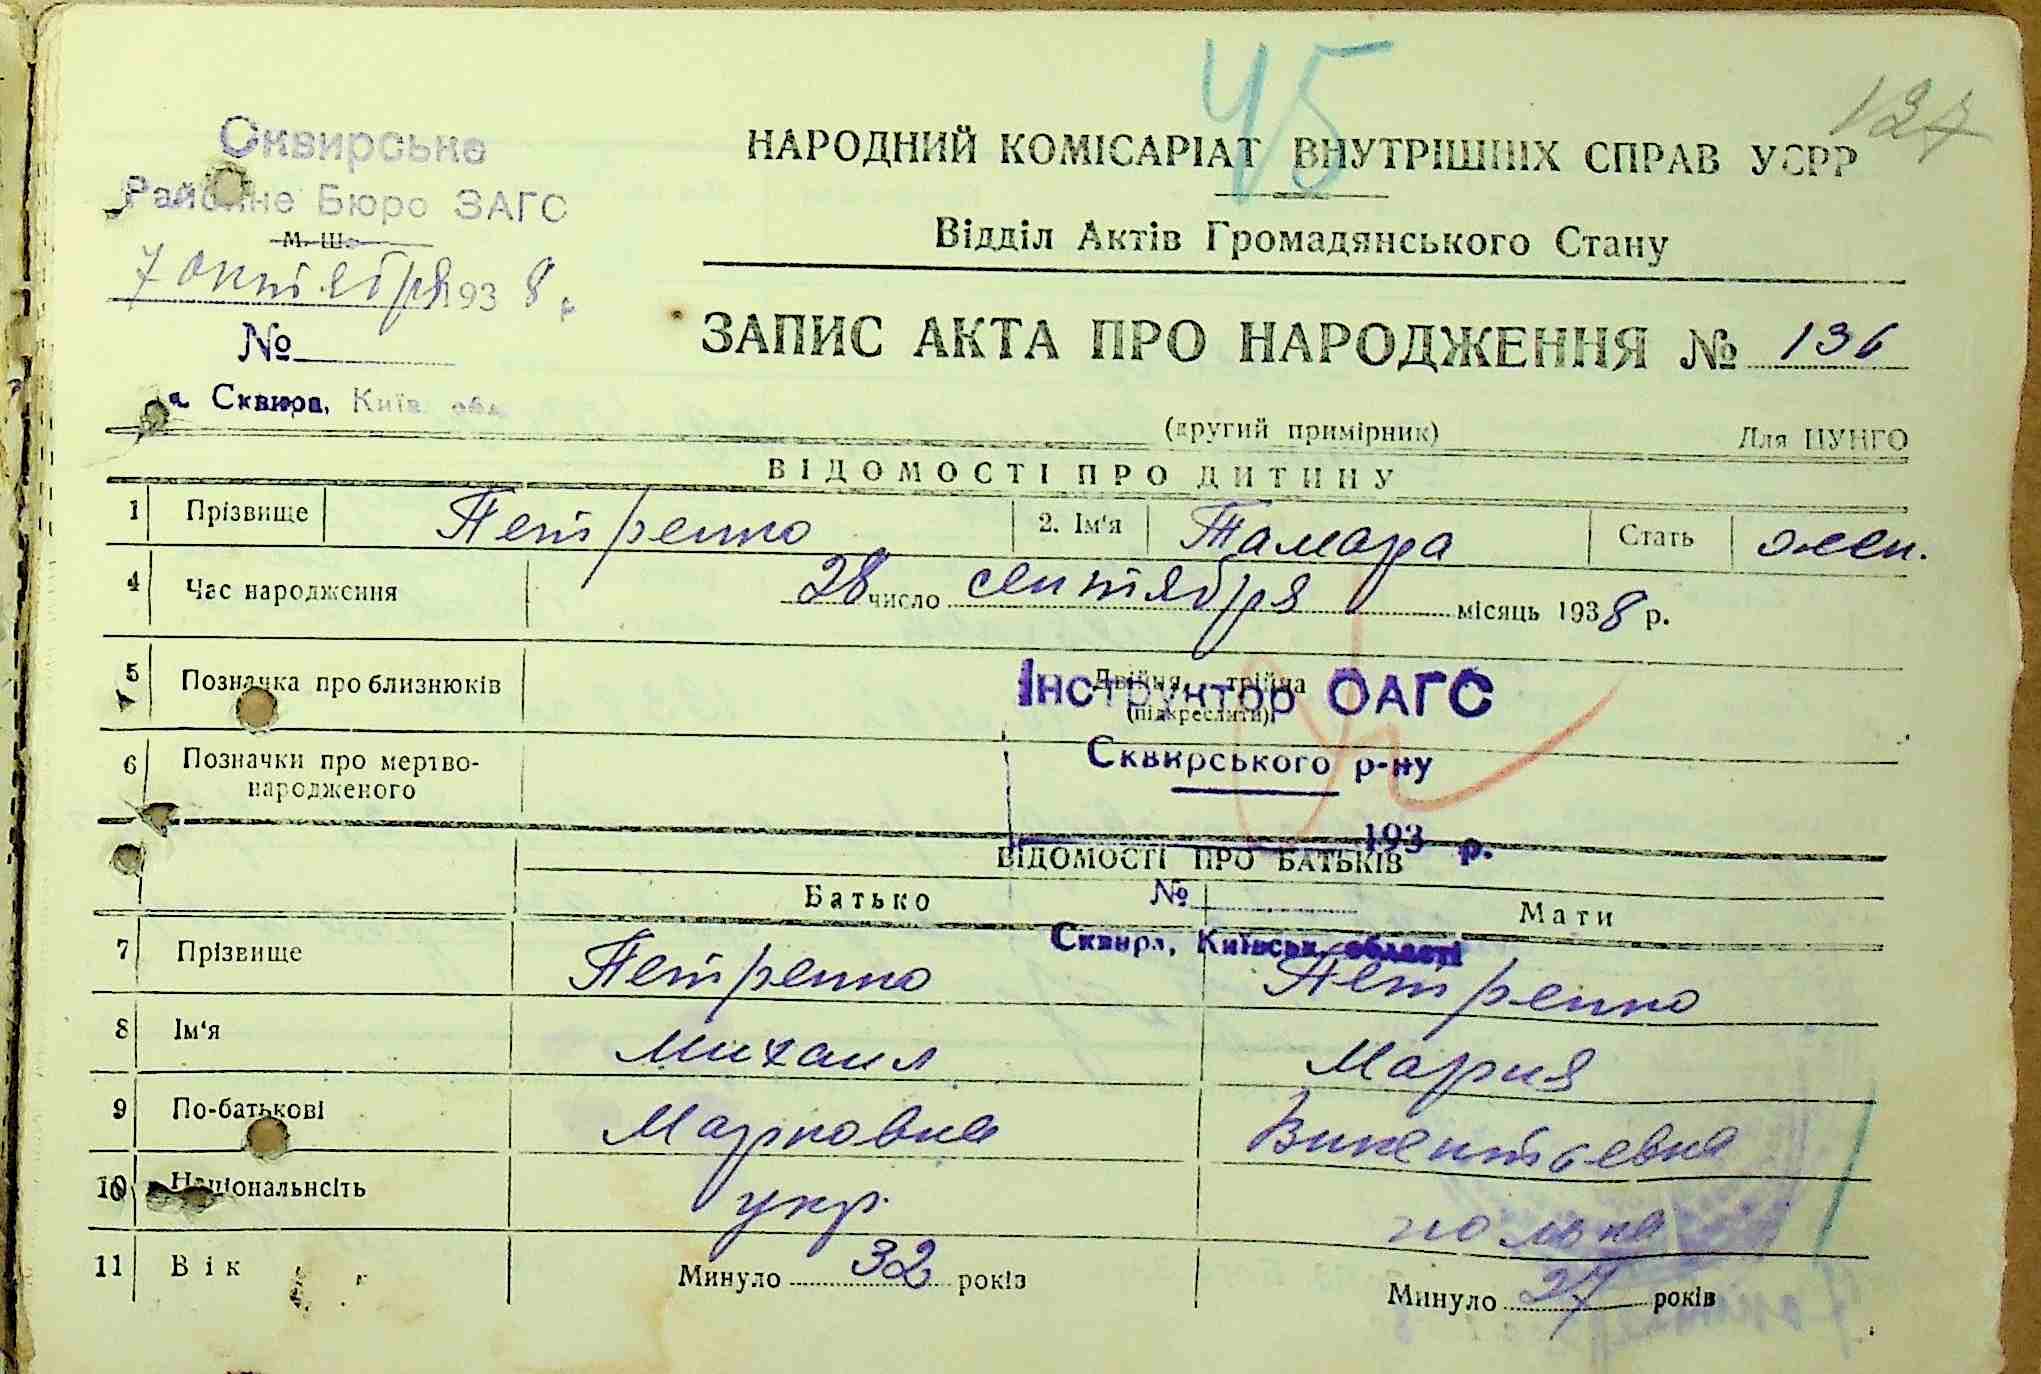 45
127
Сквирське
Районне Бюро ЗАГС
7 октября 1938 р.
№
м. Сквира, Київ. обл.
НАРОДНИЙ КОМІСАРІАТ ВНУТРІШНІХ СПРАВ УСРР
Відділ Актів Громадянського Стану
ЗАПИС АКТА ПРО НАРОДЖЕННЯ № 136
(другий примірник) Для ЦУНГО
ВІДОМОСТІ ПРО ДИТИНУ
1 Прізвище Петренко 2. Ім'я Тамара Стать жен.
4 Час народження 28 число сентября місяць 1938 р.
5 Позначка про близнюків Двійня, трійня
(підкреслити)
Інструктор ОАГС
Сквирського р-ну
6 Позначки про мертво-
народженого
193 р.
ВІДОМОСТІ ПРО БАТЬКІВ
№
Батько Мати
Сквира, Київськ. області
7 Прізвище Петренко Петренко
8 Ім'я Михаил Мария
9 По-батькові Марковна Викентьевна
10 Національнсіть укр. полька
11 Вік Минуло 32 років Минуло 27 років